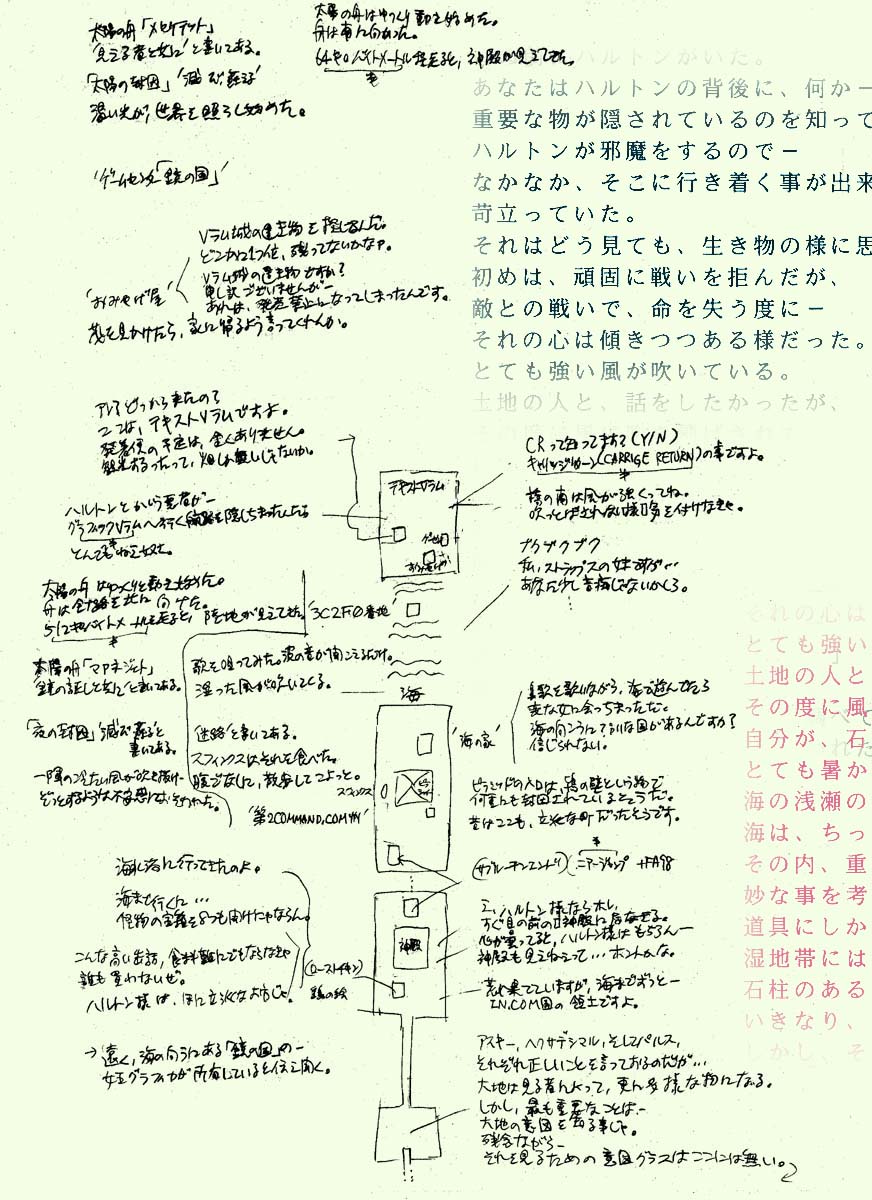 太陽の舟「メセケテット」
'見える者と共に'と書いてある。
「太陽の封因」'滅び蘇る'
淡い光が、世界を照らし始めた。
太陽の舟はゆっくり動き始めた。
舟は南に向かった。
64キロバイトメートル程走ると、神殿が見えてきた。
ハルトンがいた。
あなたはハルトンの背後に、何か－
重要な物が隠されているのを知って
ハルトンが邪魔をするので－
なかなか、そこに行き着く事が出来
苛立っていた。
それはどう見ても、生き物の様に思
初めは、頑固に戦いを拒んだが、
敵との戦いで、命を失う度に－
それの心は傾きつつある様だった。
とても強い風が吹いている。
土地の人と、話をしたかったが、
その度に風
'ゲームセンタ「鏡の国」'
Vラム城の建造物を探してるんだ。
どこかに1つ位、残ってないかなァ。
Vラム城の建造物ですか?
申し訳ございませんが－
あれは、発売禁止になってしまったんです。
'おみやげ屋'
を見かけたら、家に帰るよう言ってくれんか。
アレ?どっから来たの?
ここは、テキストVラムですよ。
発着便の予定は、全くありません。
観光するったって、畑しか無いじゃないか。
ハルトンとかいう悪者が－
グラフィックVラムへ行く通路を隠しちまったしたら
とんでもねェ奴だ。
テキストVラム
CRって知ってます?(Y/N)
キャリッジリターン(CARRIGE RETURN)の事ですよ。
橋の南は風が強くってね。
吹っとばされない様に気を付けなきゃ。
ブクブクブク
私、ストラップスの妹ですが…
あなた少し言痴じゃないかしら。
太陽の舟はゆっくりと動き始めた。
舟は針路を北に向けた。
512キロバイトメートル走ると、陸地が見えてきた。
'3C2F0番地'
太陽の舟「マアネジェト」
'鏡の証しと共に'と書いてある。
「夜の封因」'滅び蘇る'と
書いてある。
一陣の冷たい風が吹き抜け－
ぞっとするような不安におそわれた。
歌を唄ってみた。波の音が聞こえるだけ。
湿った風が吹いてくる。
'迷路'と書いてある。
スフィンクスはそれを食べた。
腹ごなしに、散歩してこよっと。
スフィンクス
'第2COMMAND.COM州'
海
'海の家'
鼻歌を歌いながら、海で遊んでたら
変な女に会っちまっただ。
海の向こうに?誰な国があるんですか?
信じられない。
ピラミッドの入口は、鏡の壁という物で
何重にも封因されているそうだ。
昔はここも、立派な町だったそうです。
(サブルーチンエンド)
(ニアージャンプ +FA98
海に港に行ってきたのよ。
海まで行くに…
怪物の宝箱を8つも開けにゃならん。
こんな高い缶詰、食料難にでもならなきゃ
誰も買わないぜ。
ハルトン様は、ほんに立派なお方じゃ。
(ローストチキン)
鶏の絵
神殿
ハルトン様ならホレ、
すぐ目の前の神殿に居なさる。
心が曇ってると、ハルトン様はもちろん－
神殿も見えねェって…ホントかな。
荒れ果てていますが、海までずうっと－
IN.COM国の領土ですよ。
→'遠く、海の向こうにある「鏡の国」の－
女王グラフィカが所有していると伝え聞く。
アスキー、ヘクサデシマル、そしてパルス、
それぞれ正しいことを言っておるのだが…
大地は見る者によって、更に多様な物になる。
しかし、最も重要なことは－
大地の意図を知る事じゃ。
残念ながら－
それを見るための意図グラスはここには無い。
それの心は
とても強い
土地の人と
その度に風
自分が、石
とても暑か
海の浅瀬の
海は、ちっ
その内、重
妙な事を考
道具にしか
湿地帯には
石柱のある
いきなり、
しかし、そ